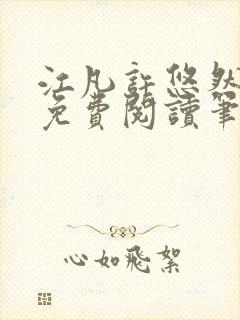 江凡許悠然
免費閱讀筆
心如飛絮